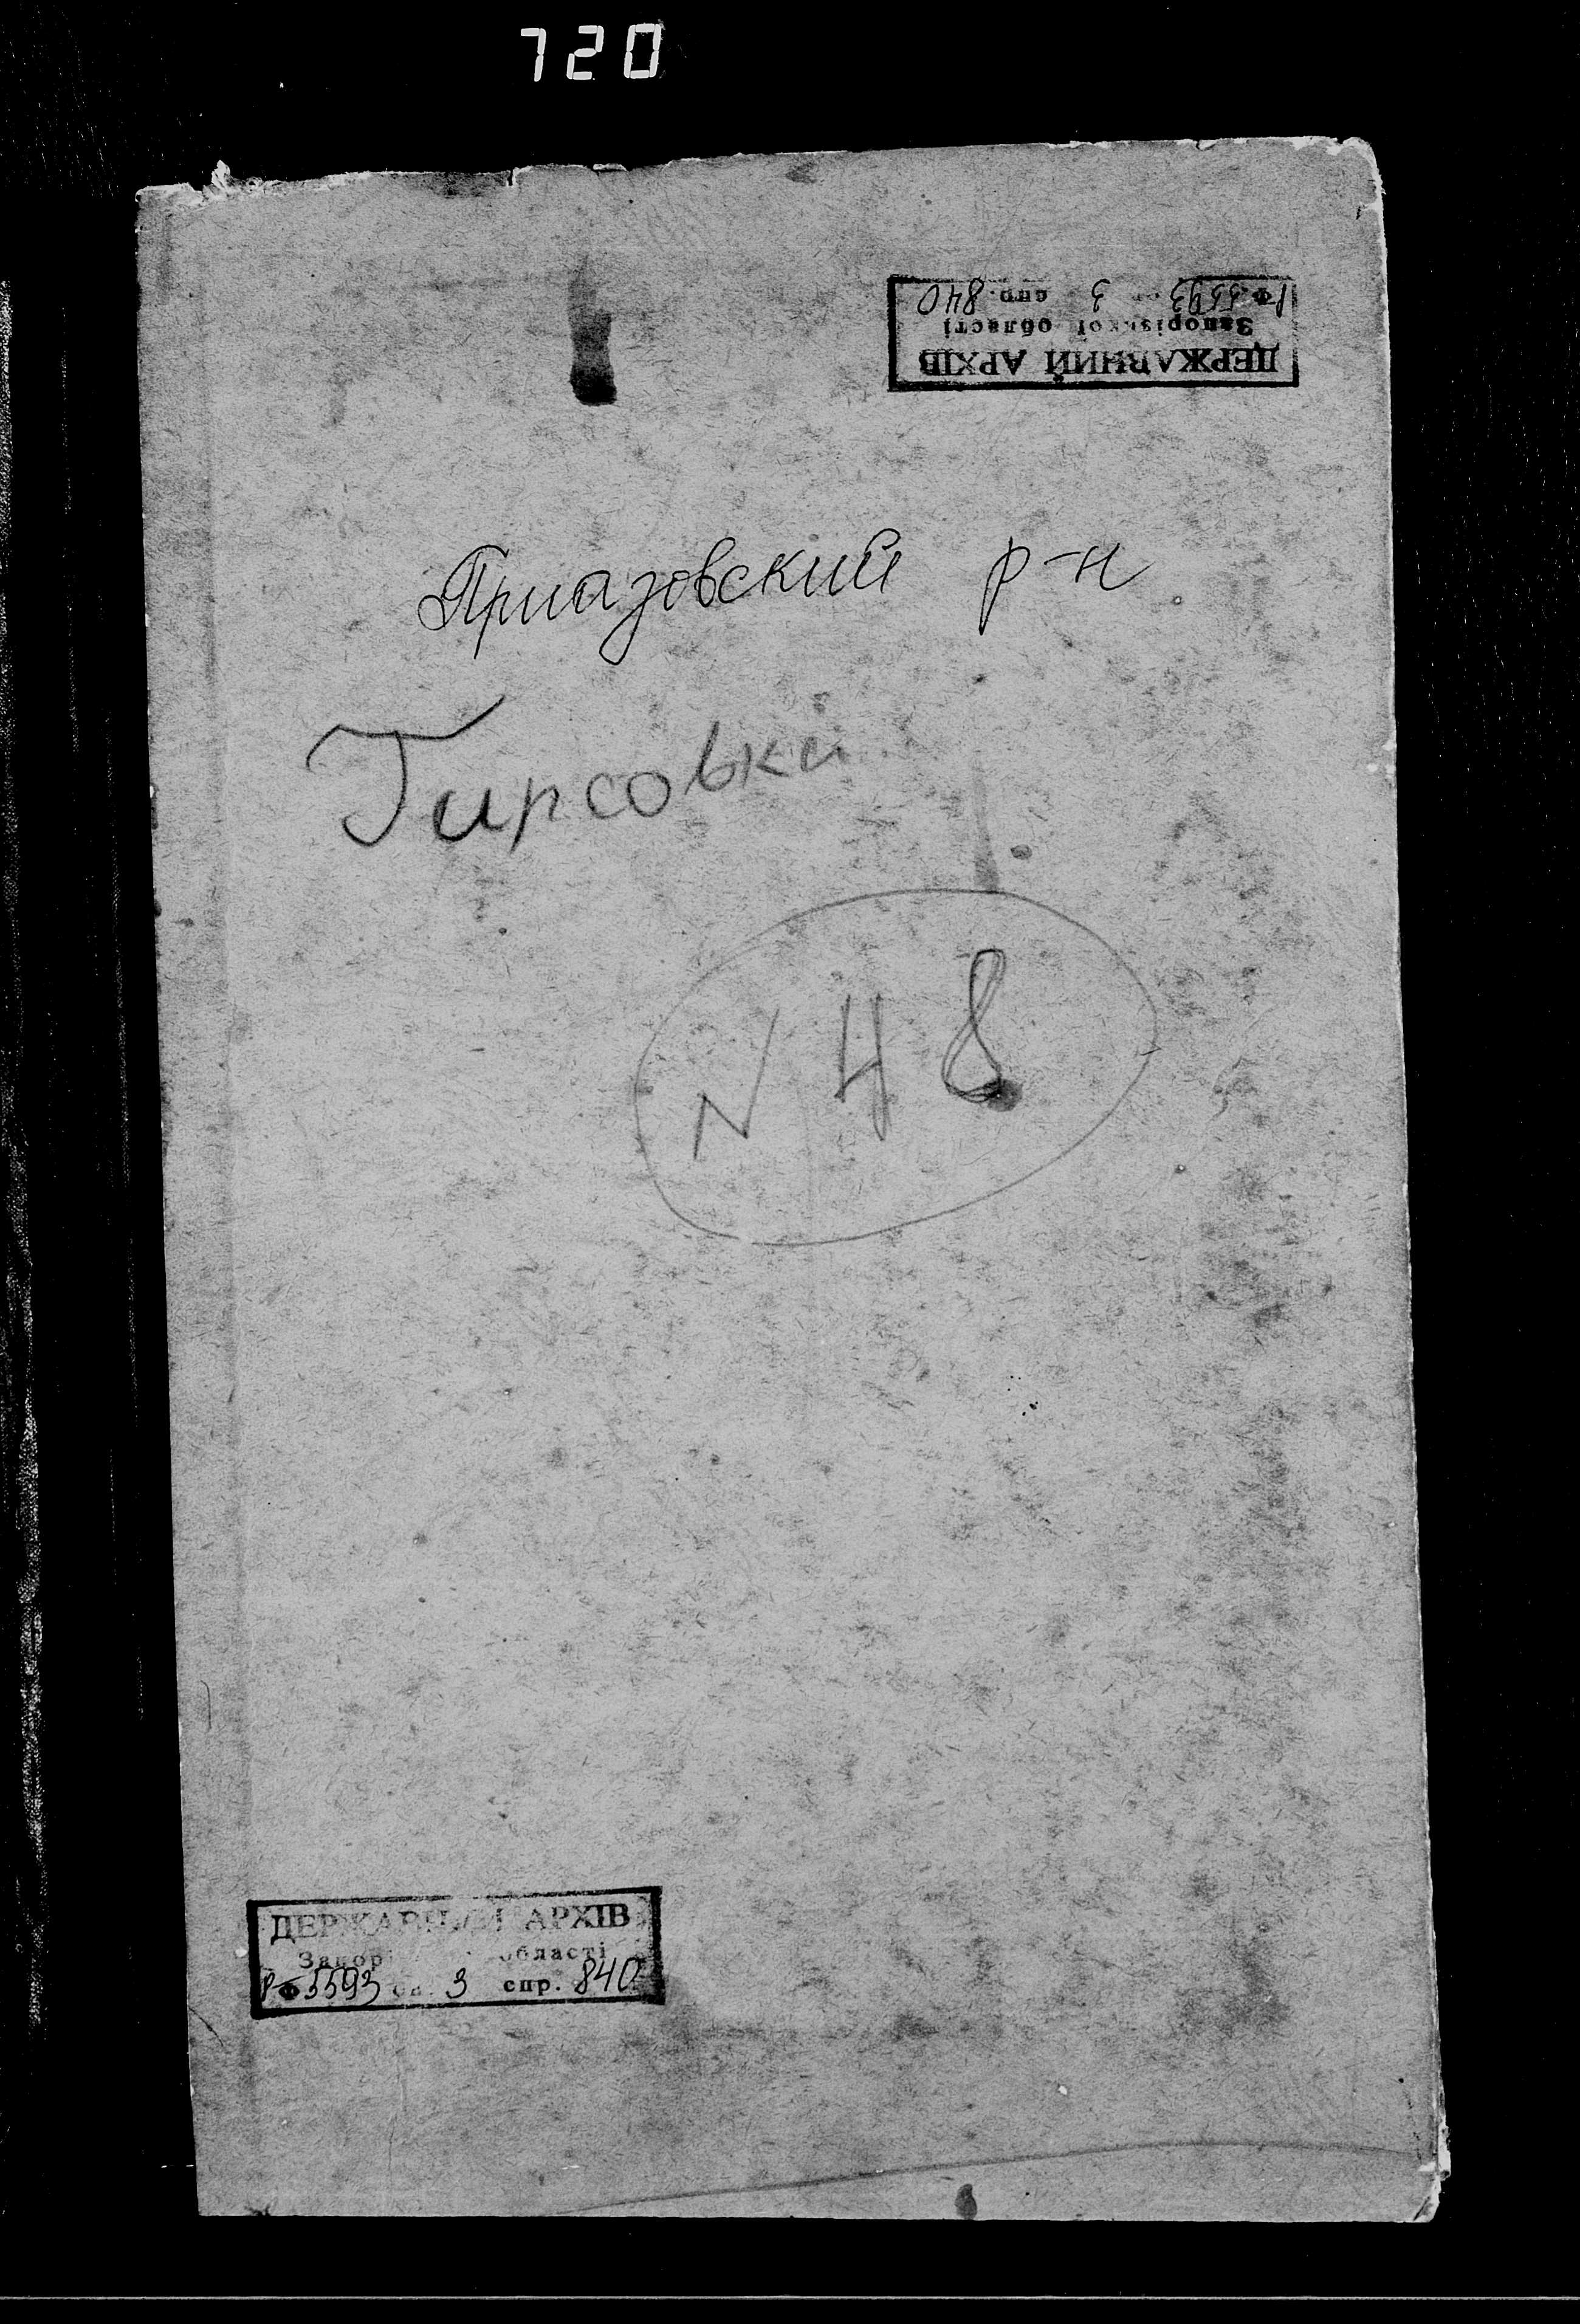 720
ДЕРЖАВНИЙ АРХІВ
Запорізької області
РФ 5593 3 спр. 840
Приазовский р-н
Гирсовка
N 48
ДЕРЖАВНИЙ АРХІВ
Запор області
РФ 5593 оп. 3 спр. 840